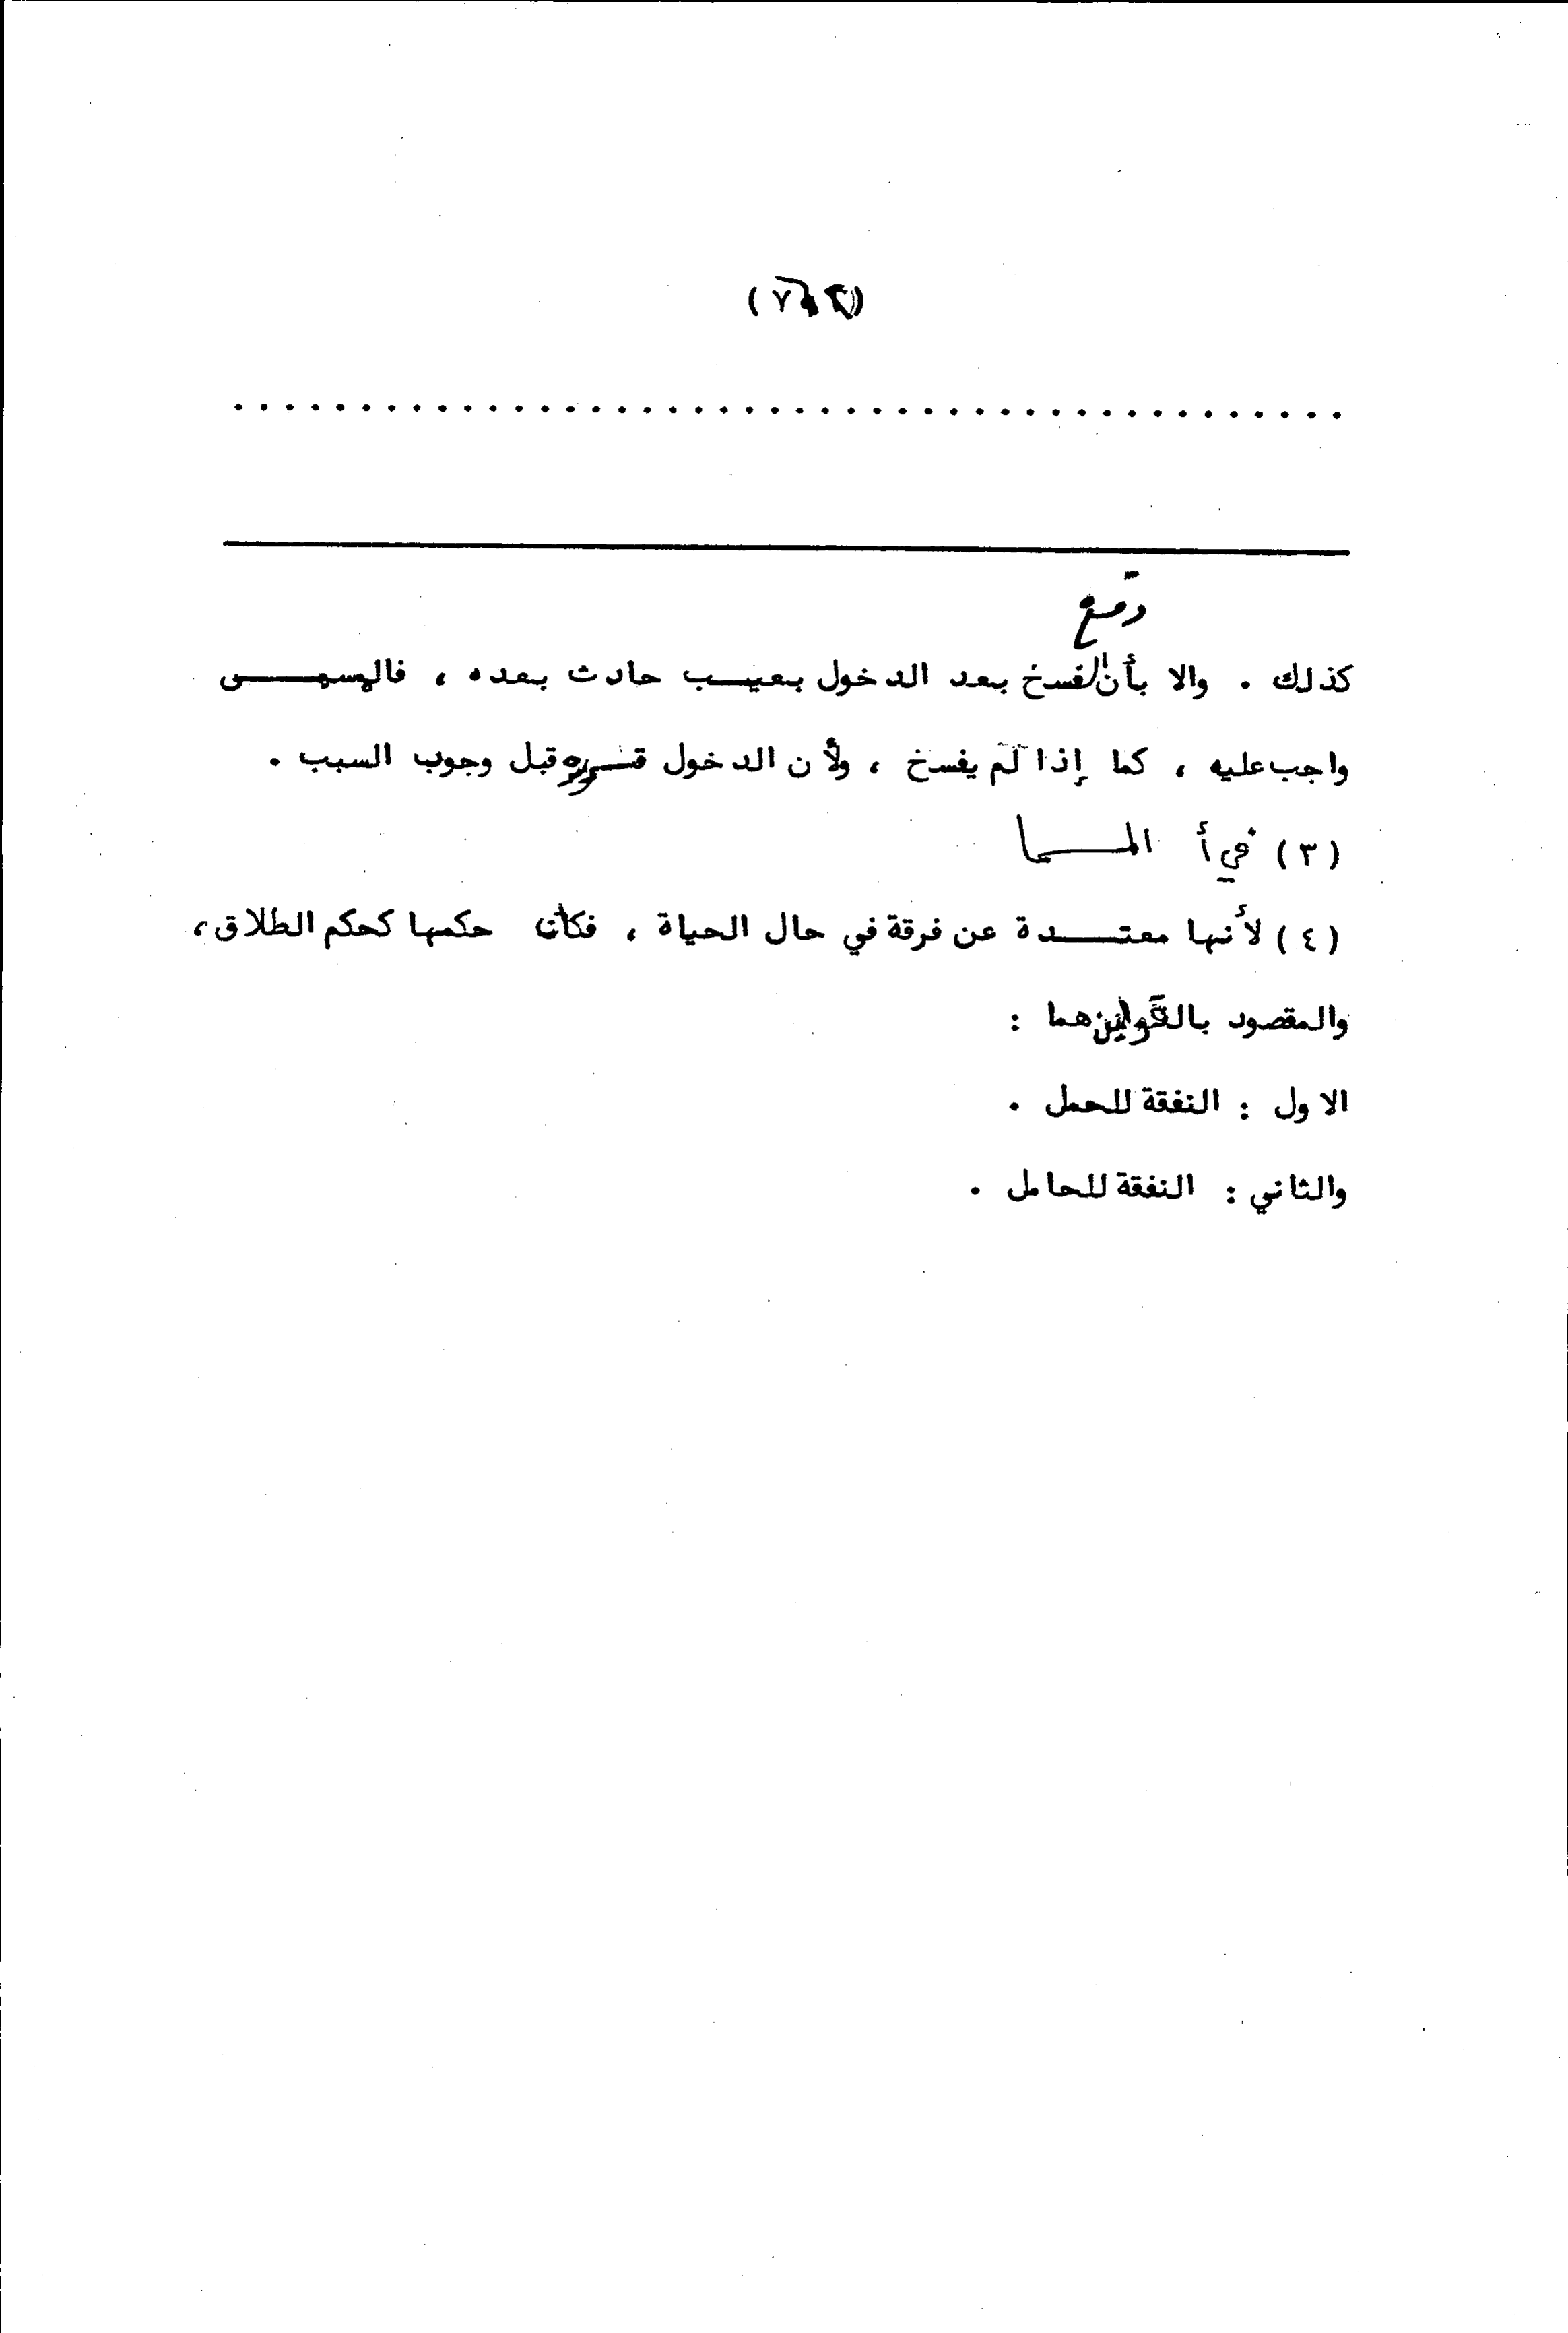 كذلك . والا بأن وقع الفسخ بعد الدخول بعيب حادث بعده ، فالمسمى
واجب عليه ، كما إذا لم يفسخ ، ولأن الدخول قرره قبل وجوب السبب .
(٣) في أ المسما
(٤) لأنها معتدة عن فرقة في حال الحياة ، فكان حكمها كحكم الطلاق ،
والمقصود بالقولين هما :
الاول : النفقة للحمل .
والثاني : النفقة للحامل .